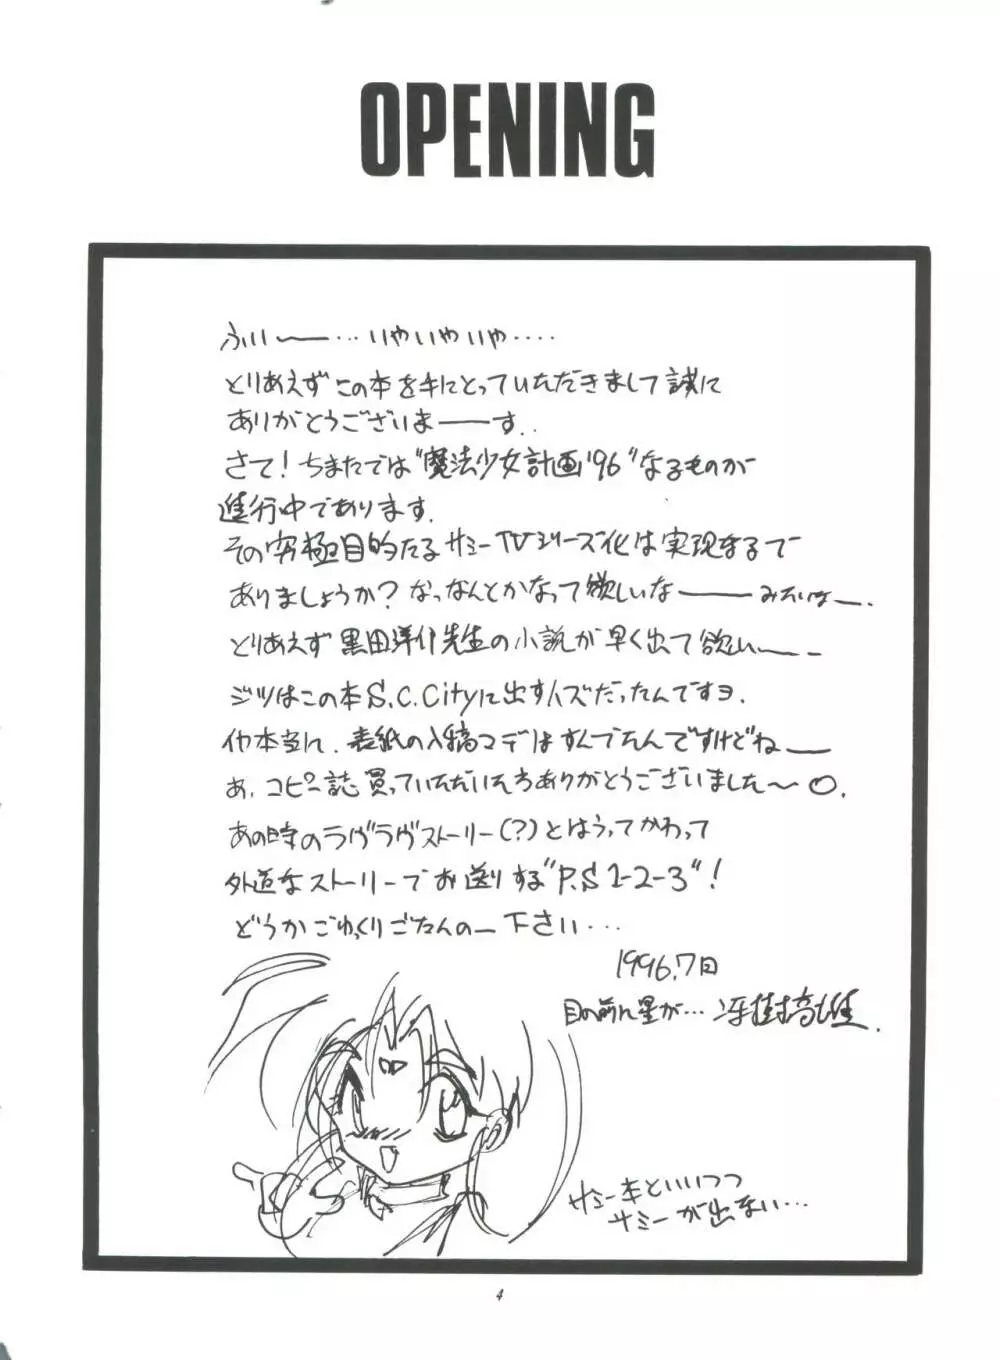 OPENING
ふいー…いやいやいや‥‥
とりあえずこの本を手にとっていただきまして誠に
ありがとうございまーーす..
さて!ちまたでは"魔法少女計画'96"なるものが
進行中であります.
その究極目的たるサミーTVシリーズ化は実現まるで
ありましょうか?なっなんとかなって欲しいなーーーみたいはー.
とりあえず黒田洋介先生の小説が早く出て欲しいー
ジツはこの本S.C.Cityに出すハズだったんですヨ.
イヤ本当に.表紙の入稿マデはすんでたんですけどねー
あ.コピー誌買っていただいた方ありがとうございました〜○.
あの時のラヴラヴストーリー(?)とはうってかわって
外道なストーリーでお送りする"P.S 1-2-3"!
どうかごゆっくりごたんのー下さい…
1996.7日
目の前に星が…冴樹高雄.
サミー本といいつつ
サミーが出ない…
4